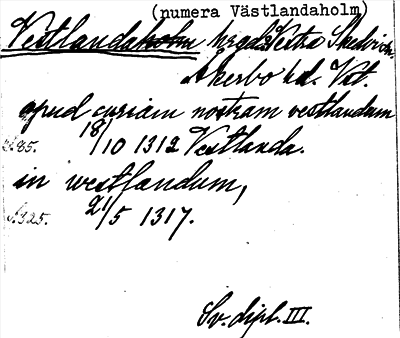 (numera Västlandaholm)
Vestlandaholm hrgd. Vestra Skedvi sn.
Åkerbo hd. Vstl.
apud curiam nostram vestlandum
s.85. 18/10 1312 Vestlanda.
in westlandum,
s.325. 21/5 1317.
Sv. dipl. III.